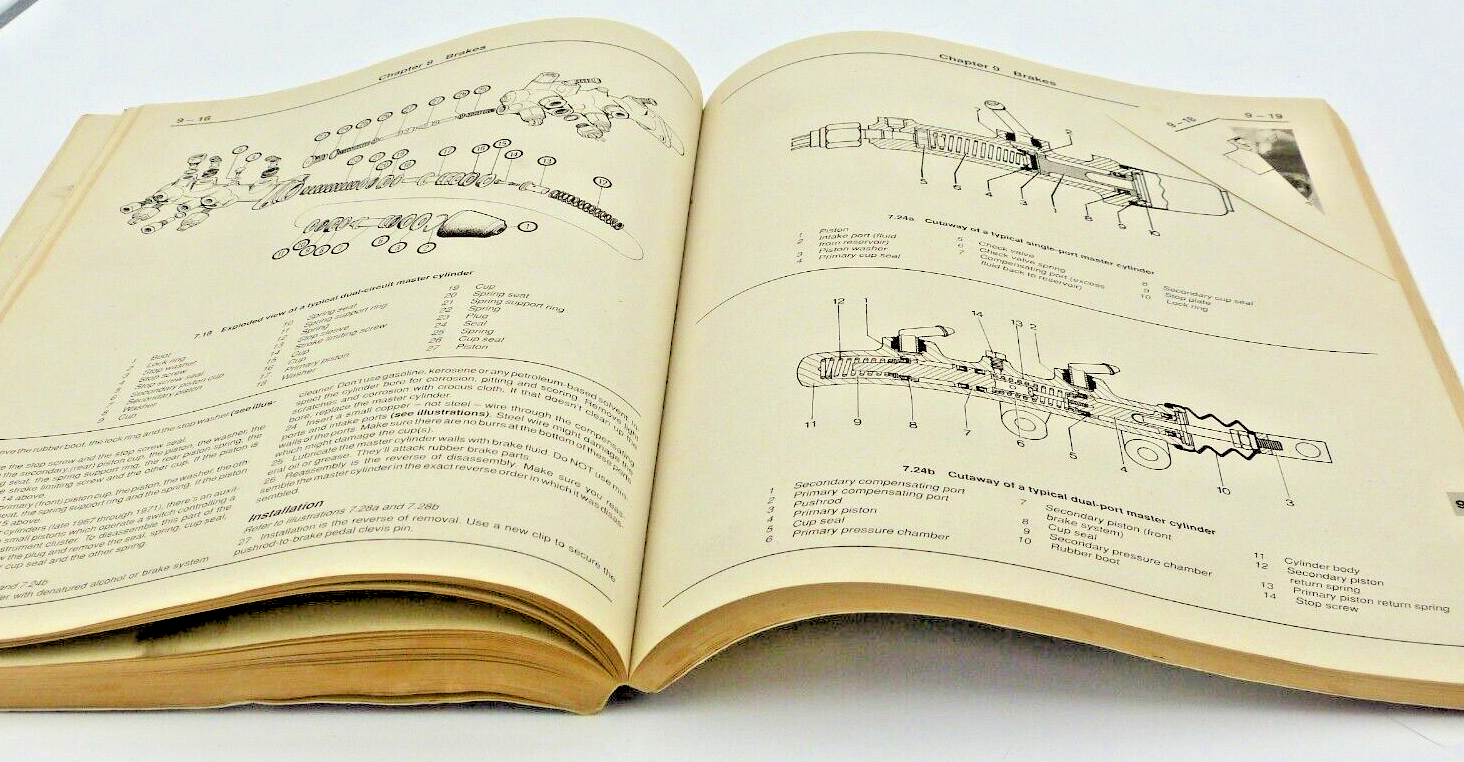 Chapter 9 Brakes
9 – 16
7.18 Exploded view of a typical dual-circuit master cylinder
1 Boot
2 Lock ring
3 Stop washer
4 Stop screw
5 Stop screw seal
6 Secondary piston cup
7 Secondary piston
8 Washer
9 Cup
10 Spring seat
11 Spring support ring
12 Spring
13 Stop sleeve
14 Stroke limiting screw
15 Cup
16 Cup
17 Primary piston
18 Washer
19 Cup
20 Spring seat
21 Spring support ring
22 Spring
23 Plug
24 Seal
25 Spring
26 Cup seal
27 Piston
move the rubber boot, the lock ring and the stop washer (see illus-
the stop screw and the stop screw seal.
the secondary (rear) piston cup, the piston, the washer, the
seat, the spring support ring, the rear piston spring, the
stroke limiting screw and the other cup. If the piston is
14 above.
primary (front) piston cup, the piston, the washer, the oth
seat, the spring support ring and the spring. If the piston
5 above.
cylinders (late 1967 through 1971), there's an auxil-
small pistons which operate a switch controlling a
strument cluster. To disassemble this part of the
the plug and remove the seal, spring, cup seal,
cup seal and the other spring.
and 7.24b
with denatured alcohol or brake system
cleaner. Don't use gasoline, kerosene or any petroleum-based solvent. In-
spect the cylinder bore for corrosion, pitting and scoring. Remove light
scratches and corrosion with crocus cloth. If that doesn't clean up the
bore, replace the master cylinder.
24 Insert a small copper – not steel – wire through the compensating
ports and intake ports (see illustrations). Steel wire might damage the
walls of the ports. Make sure there are no burrs at the bottom of these ports
which might damage the cup(s).
25 Lubricate the master cylinder walls with brake fluid. Do NOT use min-
eral oil or grease. They'll attack rubber brake parts.
26 Reassembly is the reverse of disassembly. Make sure you reas-
semble the master cylinder in the exact reverse order in which it was disas-
sembled.
Installation
Refer to illustrations 7.28a and 7.28b
27 Installation is the reverse of removal. Use a new clip to secure the
pushrod-to-brake pedal clevis pin.
Chapter 9 Brakes
9 – 18
9 – 19
7.24a Cutaway of a typical single-port master cylinder
1 Piston
2 Intake port (fluid
from reservoir)
3 Piston washer
4 Primary cup seal
5 Check valve
6 Check valve spring
7 Compensating port (excess
fluid back to reservoir)
8 Secondary cup seal
9 Stop plate
10 Lock ring
12 1 14 13 2
11 9 8 7 6 5 4 10 3
7.24b Cutaway of a typical dual-port master cylinder
1 Secondary compensating port
2 Primary compensating port
3 Pushrod
4 Primary piston
5 Cup seal
6 Primary pressure chamber
7 Secondary piston (front
brake system)
8 Cup seal
9 Secondary pressure chamber
10 Rubber boot
11 Cylinder body
12 Secondary piston
return spring
13 Primary piston return spring
14 Stop screw
9